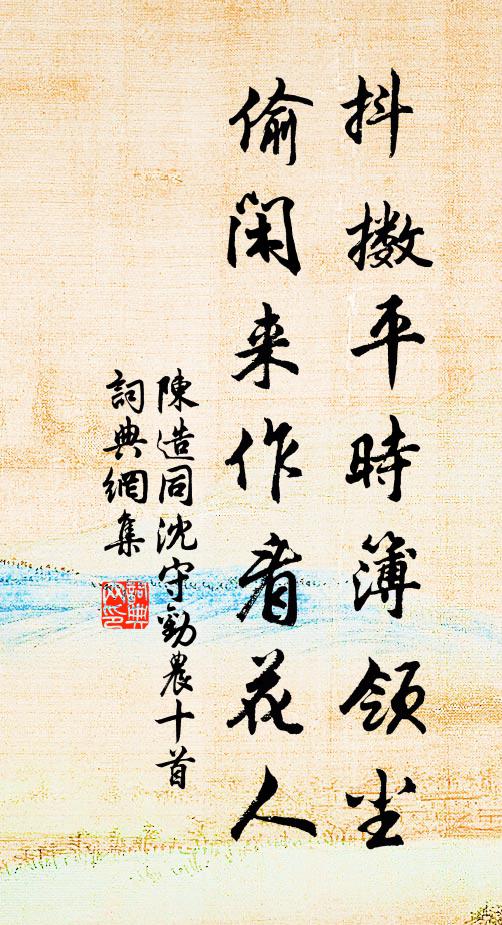 抖擻平時簿領尘
偷閑来作看花人
陳造同沈守勸農十首
詞典網集